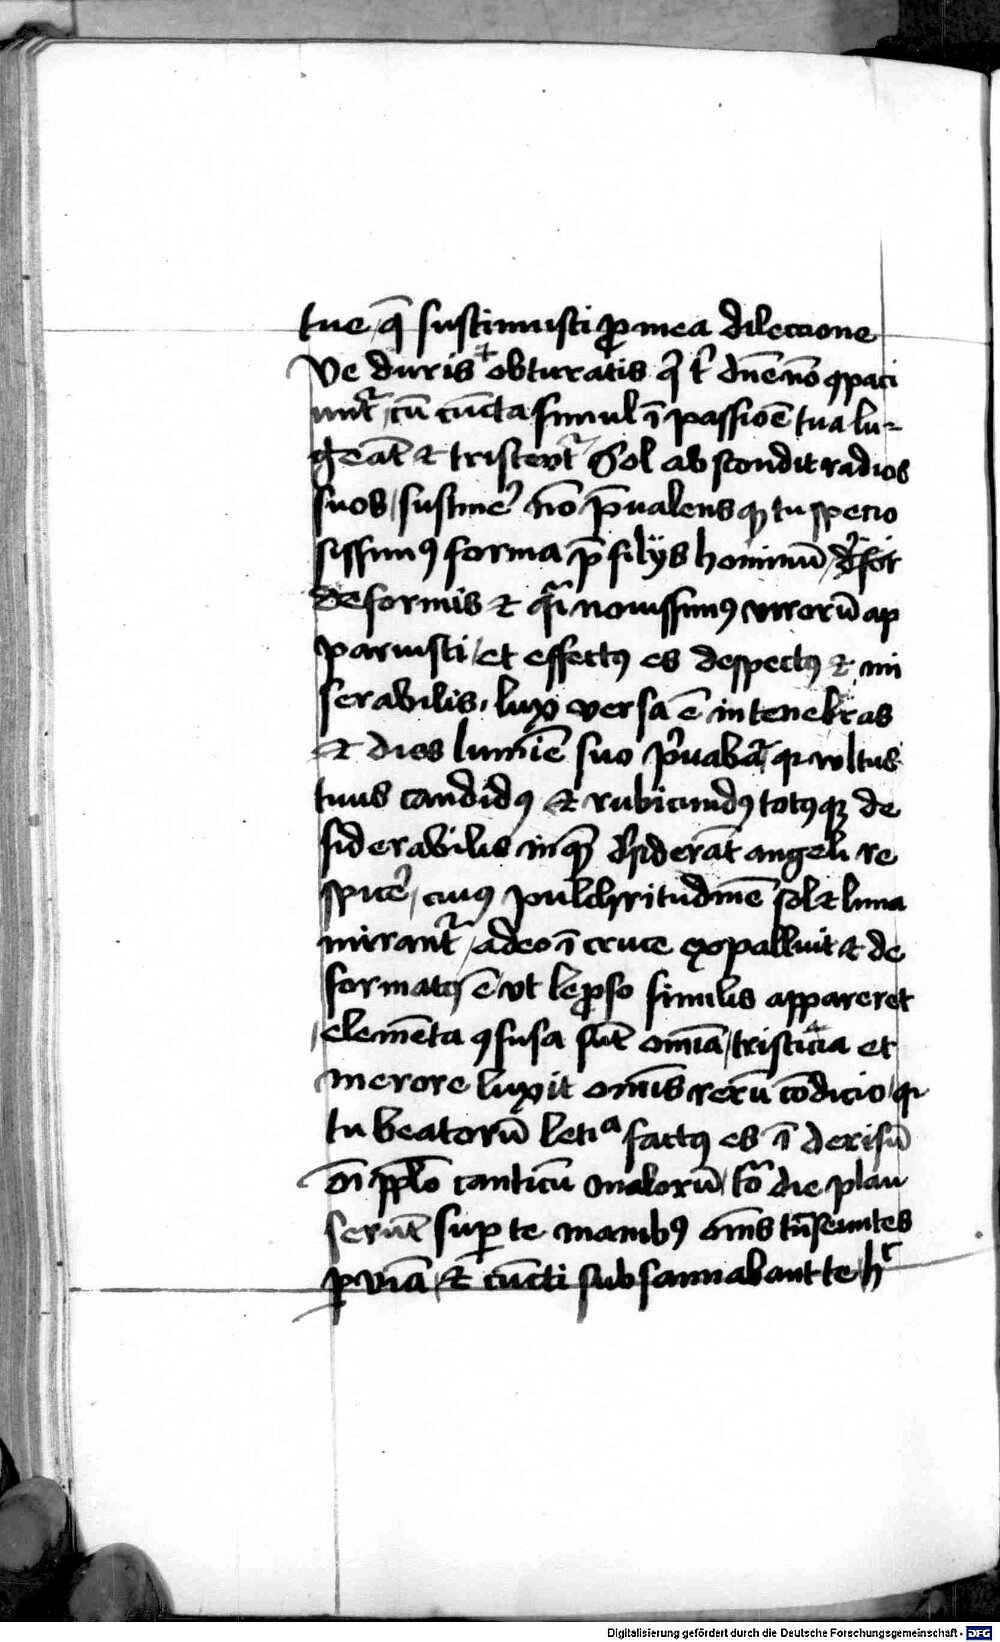 tue / q̄ sustinuisti ꝓ mea dileccione
Ve duris ⁊ obturatis qͥ tͥ dn̄e nō ꝯpaci
unt᷑ / cū cūcta simul ī passiōe tua lu-
geāt ⁊ tristent᷑ Sol abscondit radios
suos / sustineͬ nō p̄ualens qꝫ tu specio
sissimꝰ forma p̄ filijs hominū /
deformis ⁊ qͣi nouissimꝰ virorū ap
paruisti / et effectꝰ es despectꝰ ⁊ mi
serabilis / lux versa ē in tenebras
⁊ dies lumīe suo pͥuabat᷑ / qꝛ vultus
tuus candidꝰ ⁊ rubicundꝰ totꝰqꝫ de
siderabilis in quē desiderāt angeli re
spiceͬ / cuiꝰ pulchritudinē sol ⁊ luna
mirant᷑ / adeo ī cruce expalluit ⁊ de
formatꝰ ē / vt lep̱roso similis appareret
/ elemēta ꝯfusa sūt om̄ia / tristicia et
merore luxit om̄is rerū cōdicio / qꝛ
tu beatorū letiᵃ factꝰ es ī derisū
om̄i pp̄lo canticū malorū / tōͣ die plau
serūt suꝑ te manibꝰ om̄s tͣnseuntes
ꝑ viā / ⁊ cūcti subsannabant te / hͨ
Digitalisierung gefördert durch die Deutsche Forschungsgemeinschaft - DFG